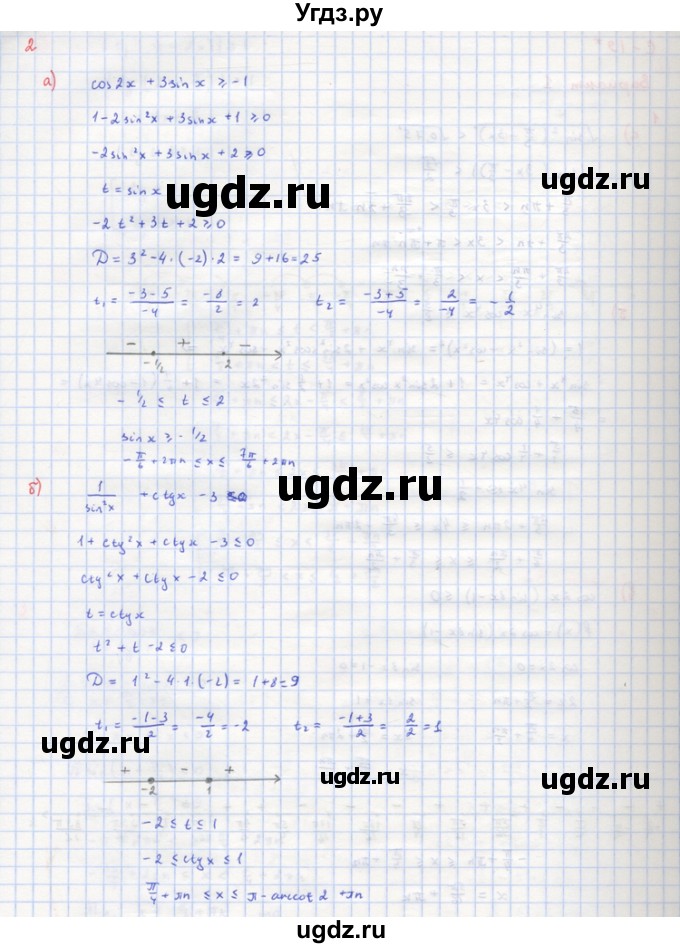 Угдз.ру
2
а) cos2x + 3sinx ≥ -1
1-2sin²x + 3sinx +1 ≥ 0
-2sin²x + 3sinx + 2 ≥ 0
t = sinx
ugdz.ru ugdz.ru
-2t² + 3t + 2 ≥ 0
D = 3² - 4·(-2)·2 = 9+16 = 25
t₁ = (-3-5)/-4 = -8/2 = 2 t₂ = (-3+5)/-4 = 2/-4 = -1/2
- + -
-1/2 2
-1/2 ≤ t ≤ 2
sinx ≥ -1/2
-π/6 + 2πn ≤ x ≤ 7π/6 + 2πn
ugdz.ru ugdz.ru
б) 1/sin²x + ctgx - 3 ≤ 0
1 + ctg²x + ctgx - 3 ≤ 0
ctg²x + ctgx - 2 ≤ 0
t = ctgx
t² + t - 2 ≤ 0
D = 1² - 4·1·(-2) = 1+8 = 9
t₁ = (-1-3)/2 = -4/2 = -2 t₂ = (-1+3)/2 = 2/2 = 1
ugdz.ru ugdz.ru ugdz.ru
+ - +
-2 1
-2 ≤ t ≤ 1
-2 ≤ ctgx ≤ 1
π/4 + πn ≤ x ≤ π - arccot 2 + πn
ugdz.ru ugdz.ru